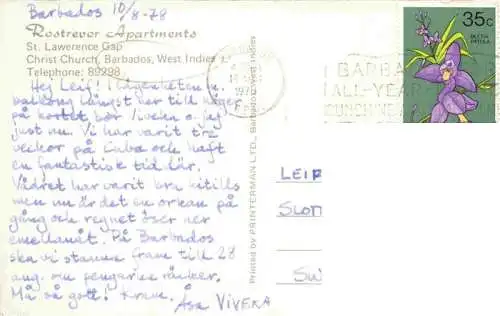 Barbados 10/8-78
Rostrevor Apartments
St. Lawerence Gap
Christ Church, Barbados, West Indies
Telephone: 89298
Hej Leif! I lägenheten m.
balkong längst ner till höger
på kortet bor Viveka o jag
just nu. Vi har varit tre
veckor på Cuba och haft
en fantastisk tid där.
Vädret har varit bra hitills
men nu är det en orkan på
gång och regnet öser ner
emellanåt. På Barbados
ska vi stanna fram till 28
aug. om pengarna räcker.
Må så gott! Kram.
Åsa VIVEKA
Printed by PRINTERMAN LTD., Barbados, West Indies
35c
BARBA
ALL-YEAR
LEIF
SLOT